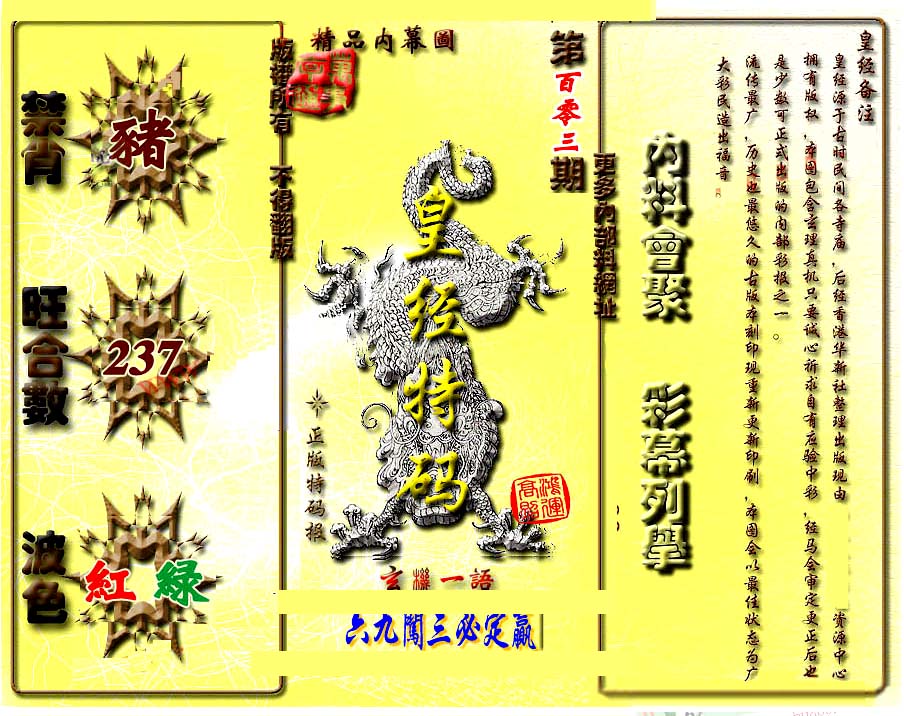 皇经备注
皇经源于古时民间各寺庙，后经香港华新社整理出版现由
资源中心
拥有版权，本图包含玄理真机只要诚心祈求自有应验中彩，经马会审定更正后也
是少数可正式出版的内部彩报之一。
流传最广，历史也最悠久的古版本刻印现重新更新印刷，本图会以最佳状态为广
大彩民造出福音
内料會聚 彩幕列舉
更多內部料網址
第百零三期
精品内幕圖
版權所有 不得翻版
皇经特码
正版特码报
鴻運高照
玄機一語
六九闖三必定贏
禁肖
豬
旺合數
237
波色
紅 綠